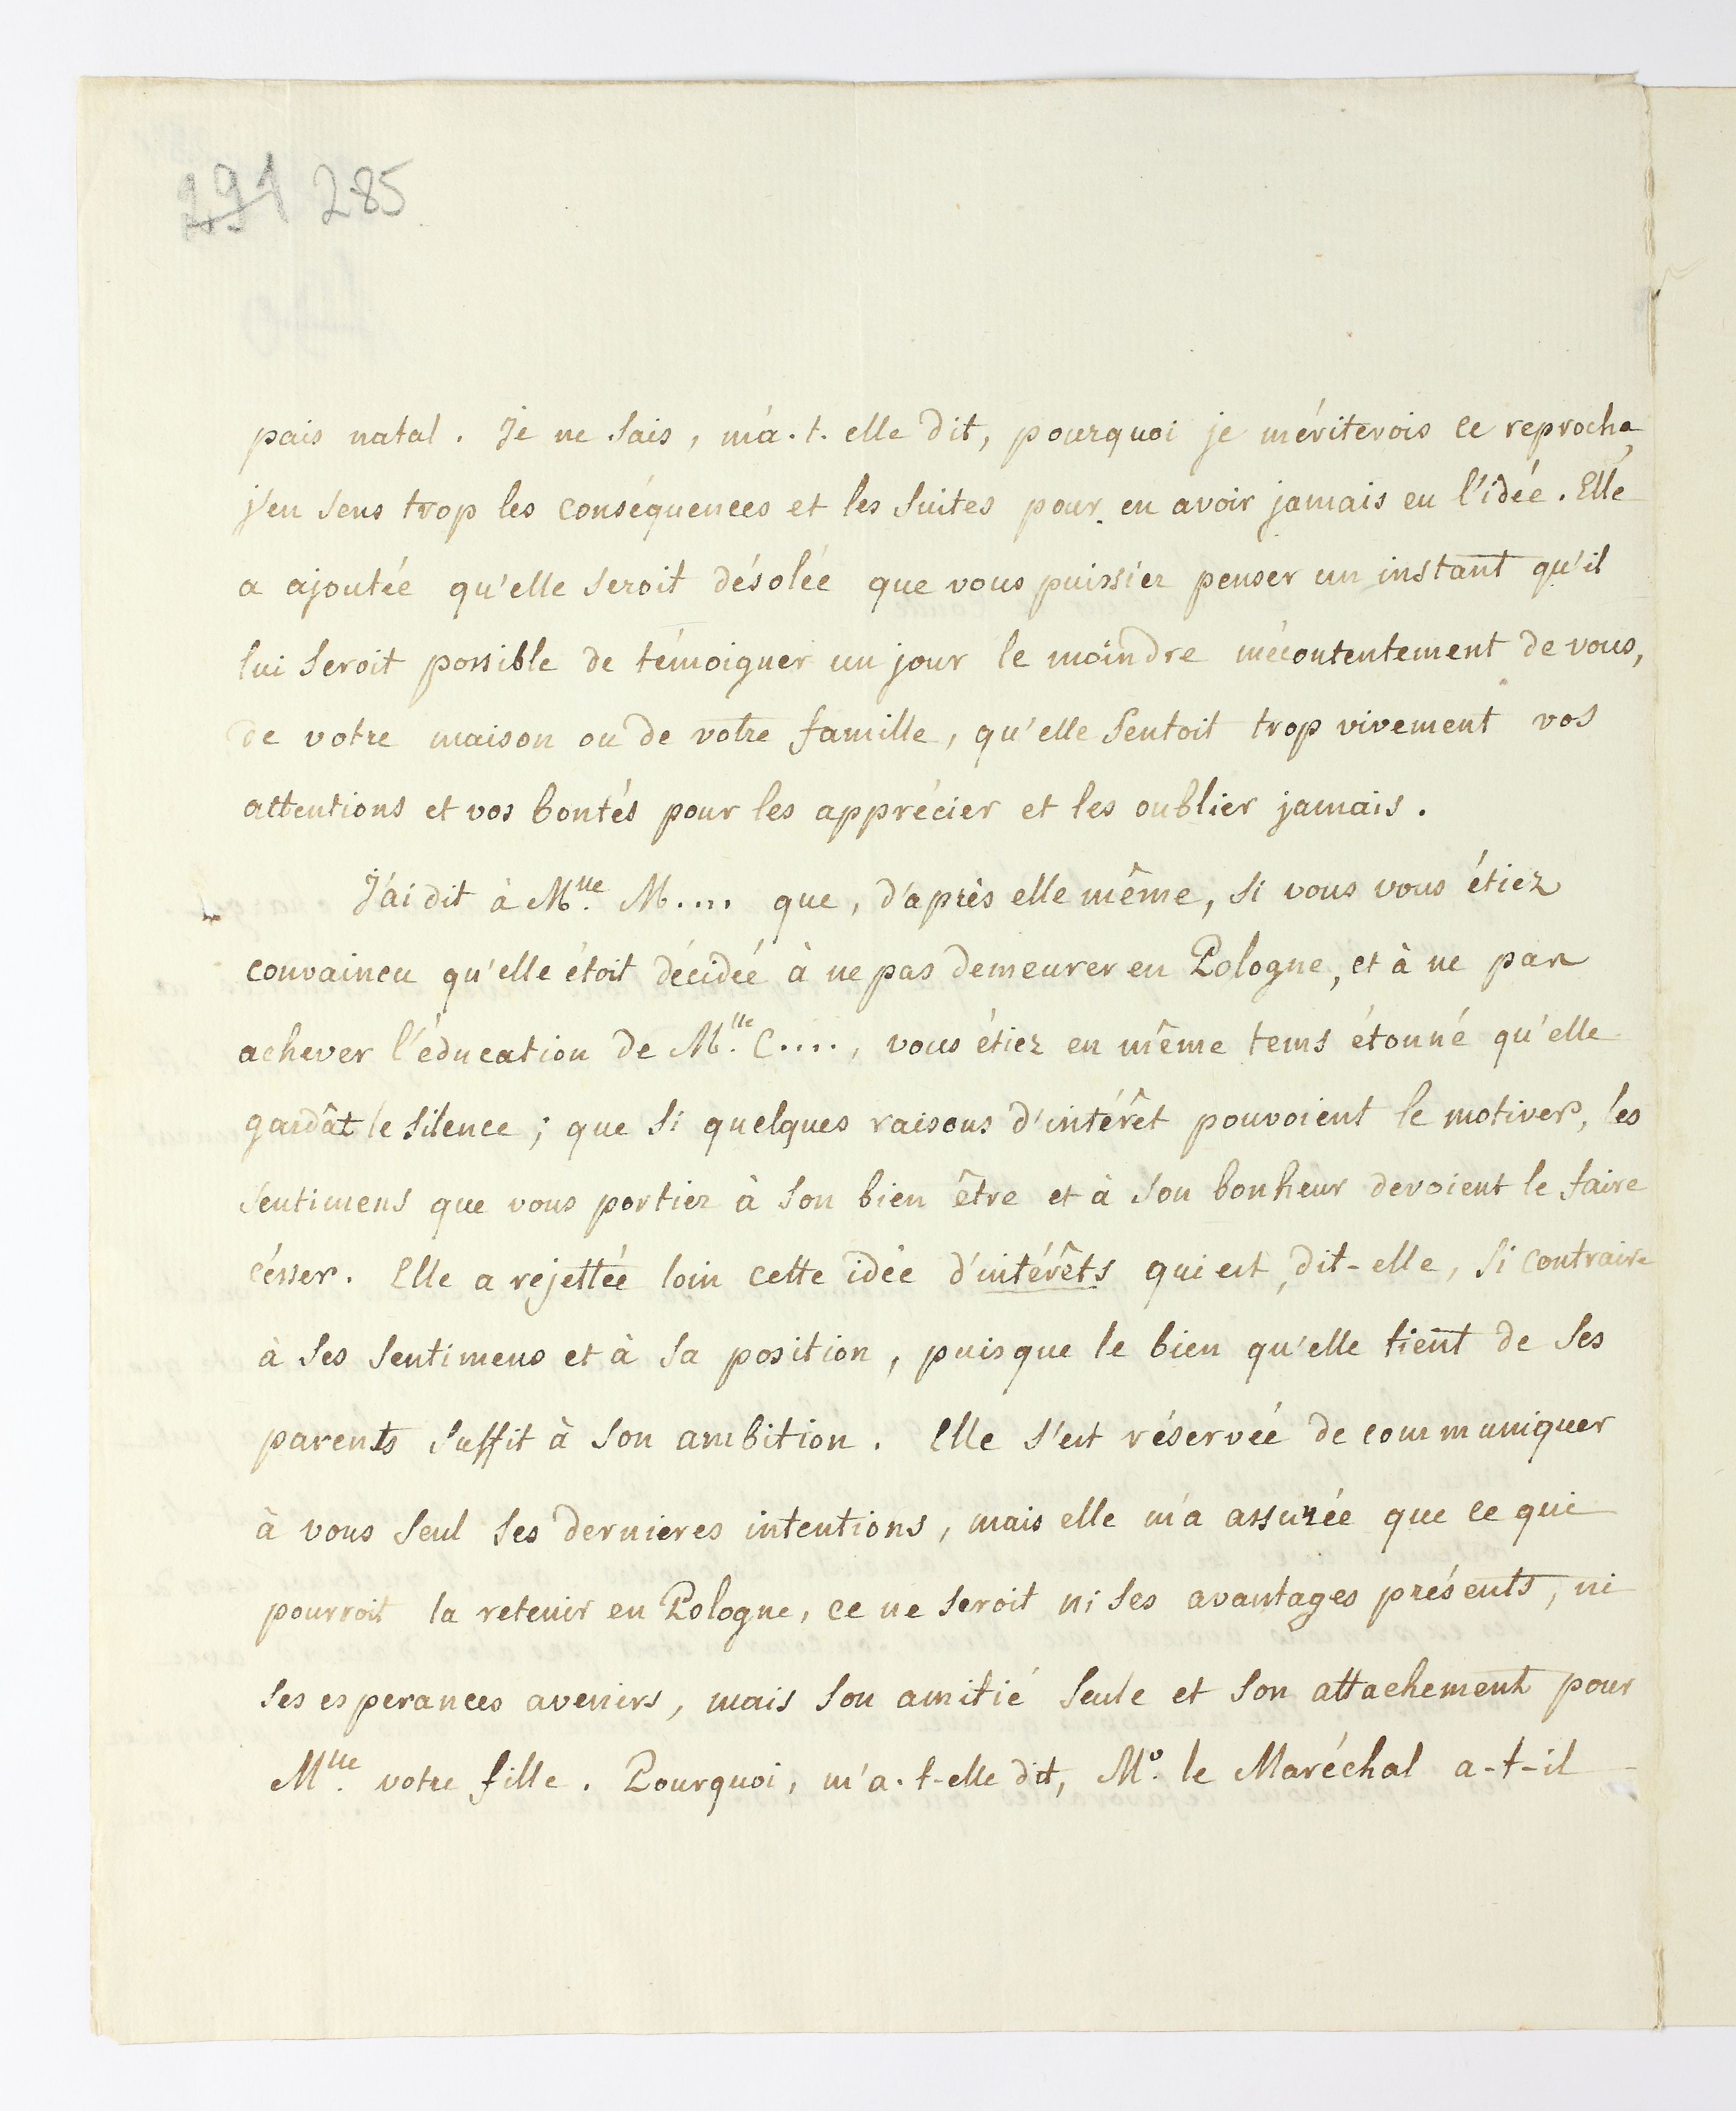 291 285
pais natal. Je ne sais, m'a.t. elle dit, pourquoi je mériterois ce reproche,
j'en sens trop les conséquences et les suites pour en avoir jamais eu l'idée. Elle
a ajoutée qu'elle seroit désolée que vous puissiez penser un instant qu'il
lui seroit possible de témoigner un jour le moindre mécontentement de vous,
de votre maison ou de votre famille, qu'elle sentoit trop vivement vos
attentions et vos bontés pour les apprécier et les oublier jamais.
J'ai dit à Mlle. M.... que, d'après elle même, si vous vous étiez
convaincu qu'elle étoit décidée à ne pas demeurer en Pologne, et à ne pas
achever l'éducation de Mlle. C...., vous étiez en même tems étonné qu'elle
gardât le silence; que si quelques raisons d'intérêt pouvoient le motiver, les
sentimens que vous portiez à son bien être et à son bonheur devoient le faire
césser. Elle a rejettée loin cette idée d'intérêts qui est, dit-elle, si contraire
à ses sentimens et à sa position, puisque le bien qu'elle tient de ses
parents suffit à son ambition. Elle s'est réservée de communiquer
à vous seul ses dernieres intentions, mais elle m'a assurée que ce qui
pourroit la retenir en Pologne, ce ne seroit ni ses avantages présents, ni
ses esperances avenirs, mais son amitié seule et son attachement pour
Mlle. votre fille. Pourquoi, m'a.t-elle dit, Mr. le Maréchal a-t-il